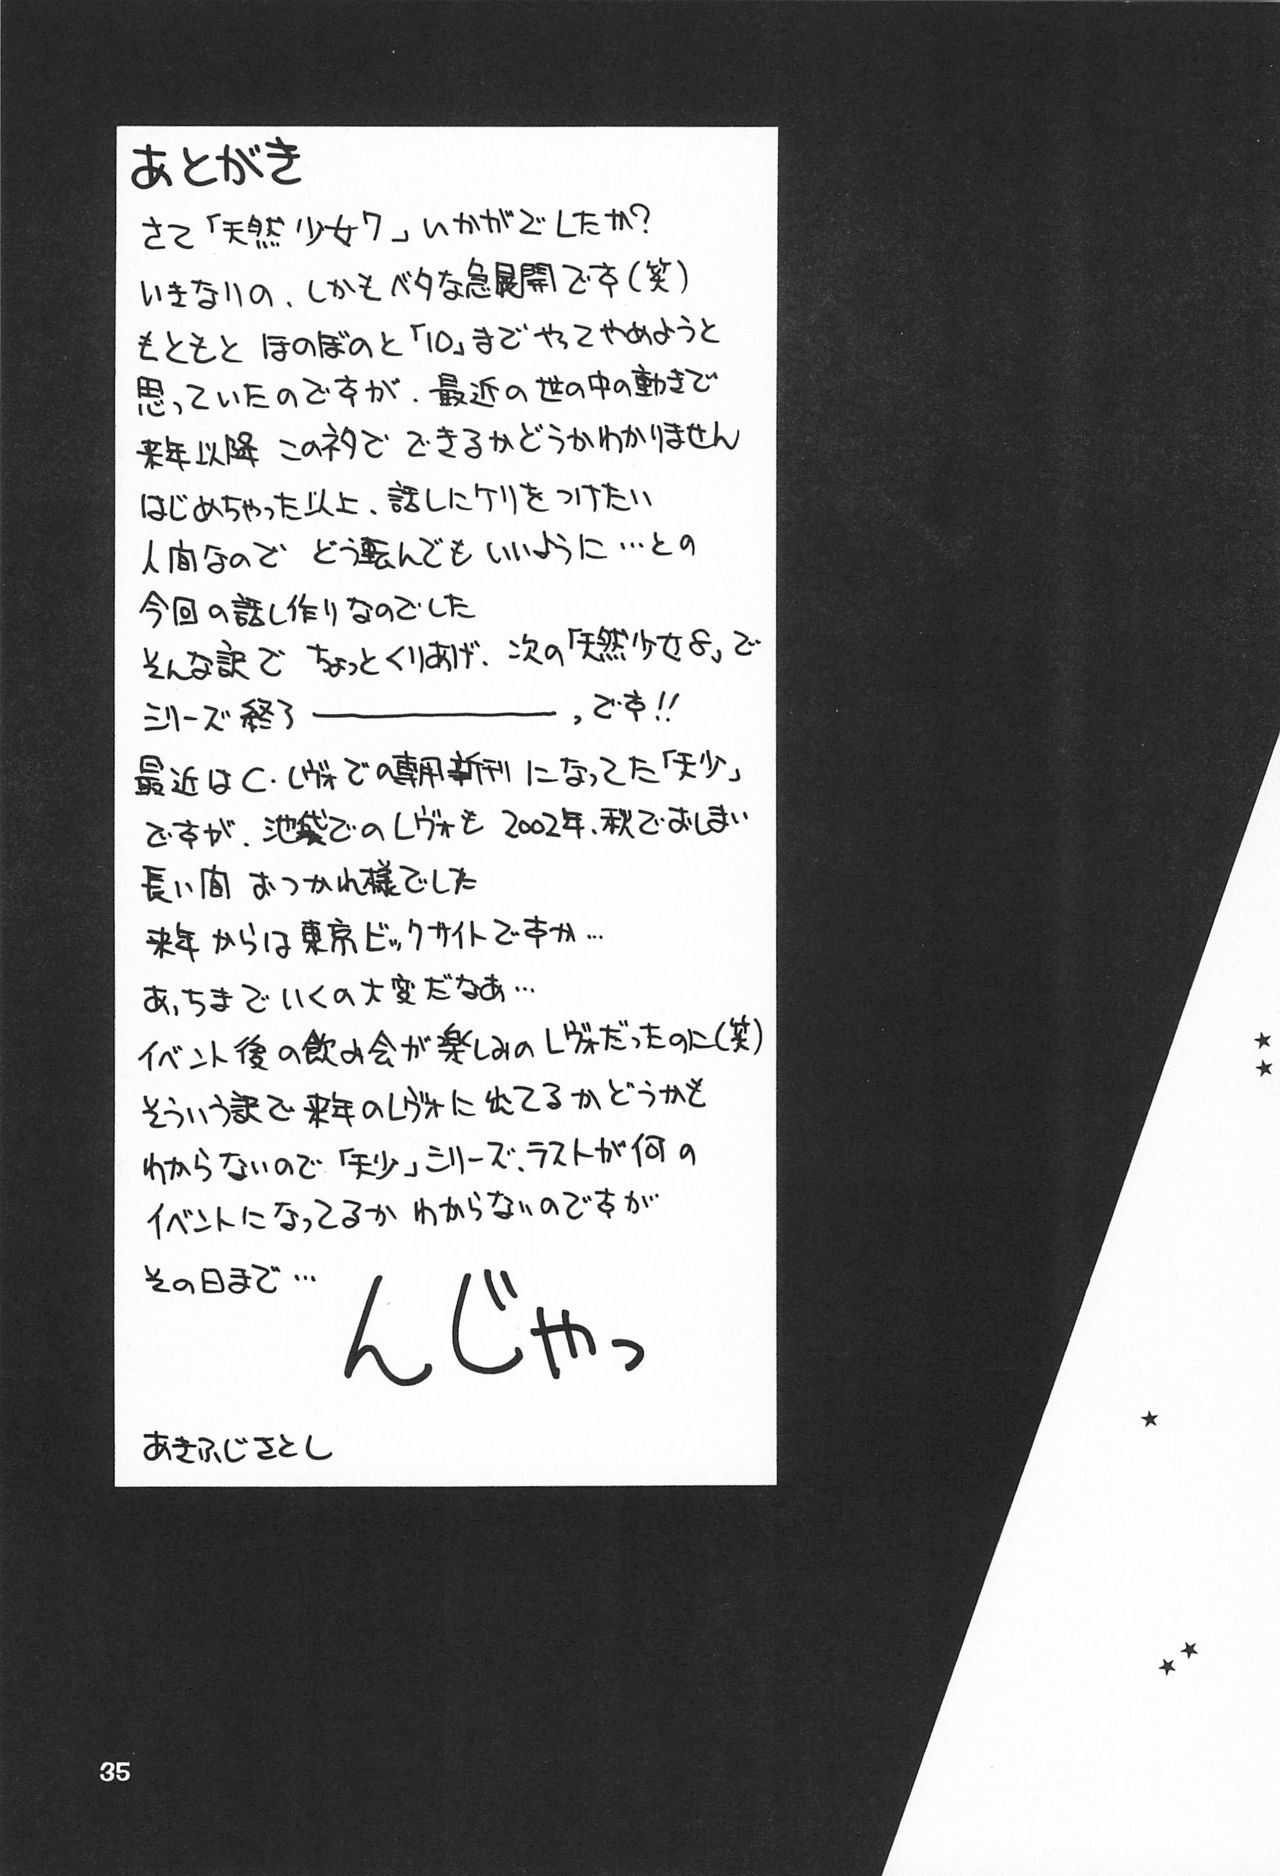 あとがき
さて「天然少女7」いかがでしたか?
いきなりの、しかもベタな急展開です(笑)
もともと ほのぼのと「10」まで やってやめようと
思っていたのですが、最近の世の中の動きで
来年以降 このネタで できるかどうかわかりません
はじめちゃった以上、話しにケリをつけたい
人間なので どう転んでも いいように…との
今回の話し作りなのでした
そんな訳で ちょっとくりあげ、次の「天然少女8」で
シリーズ終了――――――っです!!
最近はC・レヴォでの専用新刊になってた「天少」
ですが、池袋でのレヴォも 2002年、秋でおしまい
長い間 おつかれ様でした
来年からは東京ビックサイトですか…
あっちまでいくの大変だなあ…
イベント後の飲み会が楽しみのレヴォだったのに(笑)
そういう訳で来年のレヴォに出てるかどうかも
わからないので「天少」シリーズ、ラストが何の
イベントになってるか わからないのですが
その日まで…
んじゃっ
あきふじさとし
35